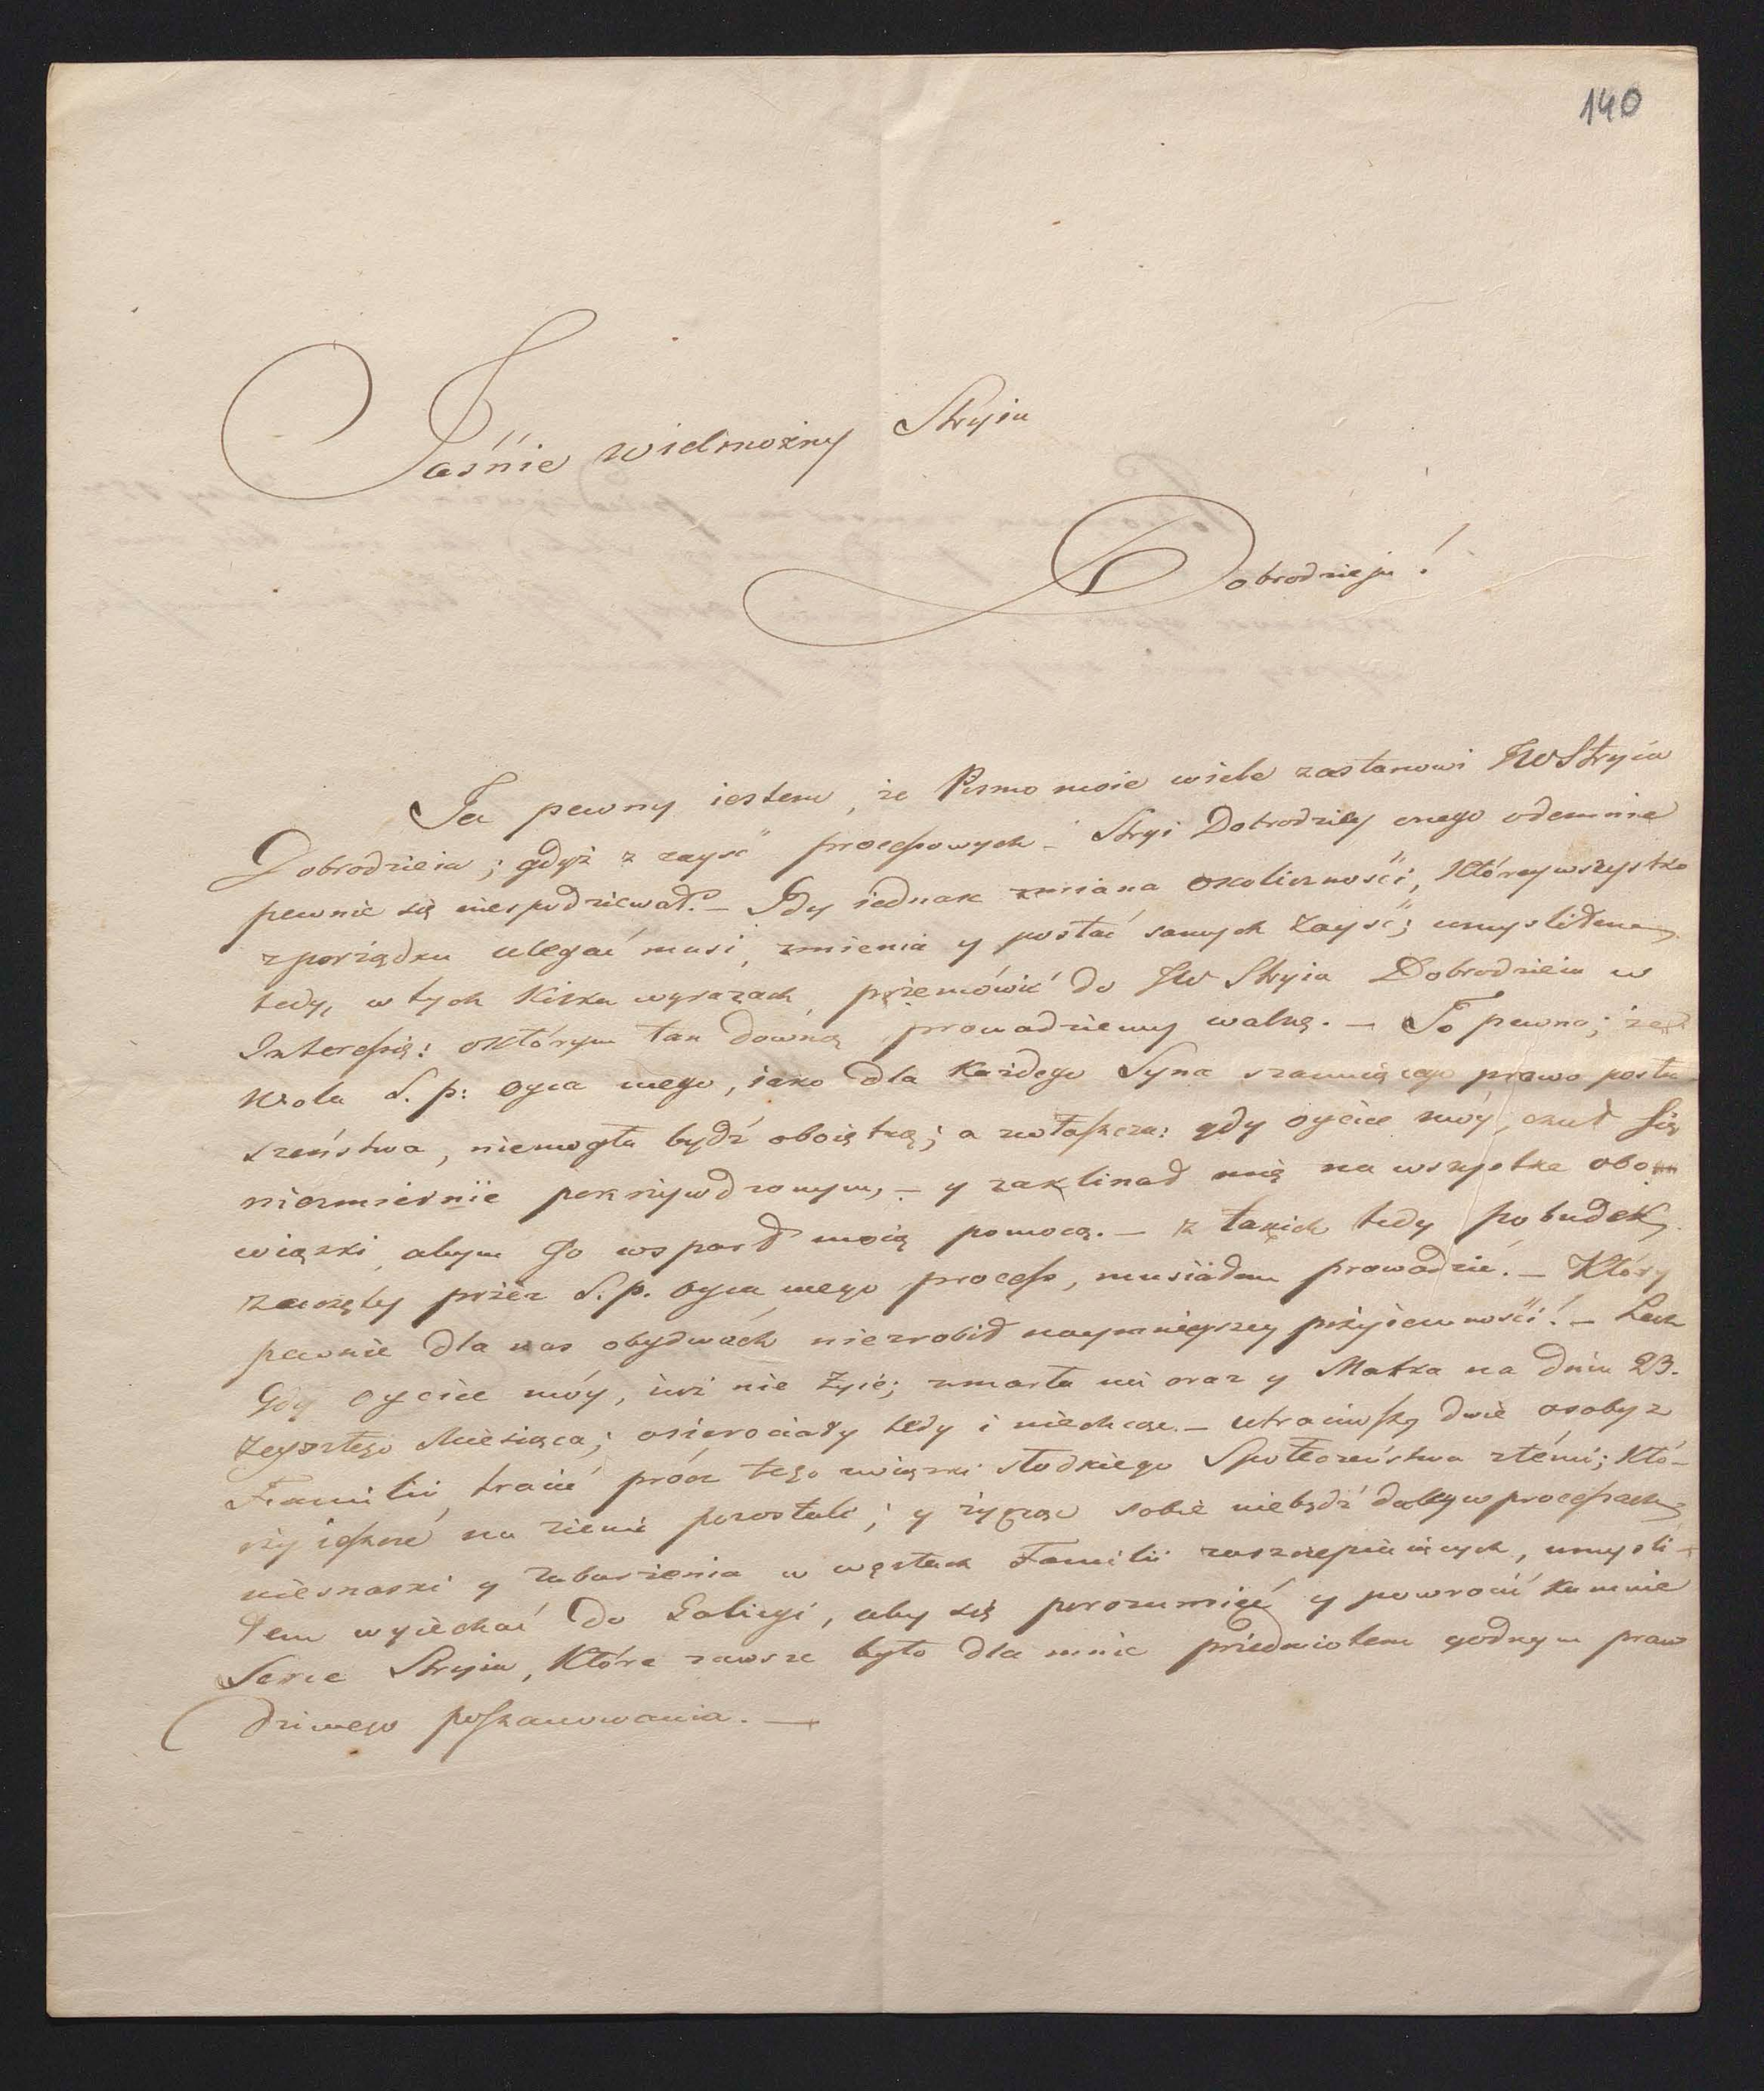 140
Jaśnie wielmożny Stryiu
Dobrodzieju!
Ja pewny iestem, że Pismo moie wiele zastanowi JWStryia
Dobrodzieia; gdyż z zayść processowych - Stryi Dobrodziey onego odemnie
pewnie się niespodziewał. - Gdy iednak zmiana okoliczności, którey wszystko
z porządku ulegać musi, zmienia y postać samych zayść; umysliłem
tedy, w tych kilku wyrazach przemówić do JW Stryia Dobrodzieia w
Interessie: o którym tak dawną prowadziemy walkę. - To pewno; że
Wola S. p: oyca mego, iako dla każdego Syna szanuiącego prawo posłu
szeństwa, niemogła bydź oboiętną; a zwłaszcza: gdy oyciec móy, czuł się
niezmiernie pokrzywdzonym, - y zaklinał mię na wszystkie obo
wiązki, abym Go wsparł moią pomocą. - z takich tedy pobudek
zaczęty przez S. p. oyca mego process, musiałem prowadzić. - Który
pewnie dla nas obydwóch niezrobił naymnieyszey przyiemności! - Lecz
Gdy oyciec móy, iuż nie żyie; umarła mi oraz y Matka na dniu 23.
zeszłego Miesiąca; osierociały tedy i niechcąc - utraciwszy dwie osoby z
Familii, tracić prócz tego związki słodkiego Społeczeństwa z temi; Któ-
rzy ieszcze na ziemi pozostali; y życząc sobie niebydź daley w processach
niesnaski y zaburzenia w węzłach Familii zaszczepiaiących, umyśli-
łem wyiechać do Galicyi, aby się porozumieć y powrócić ku mnie
Serce Stryia, Które zawsze było dla mnie przedmiotem godnym praw
dziwego poszanowania. -